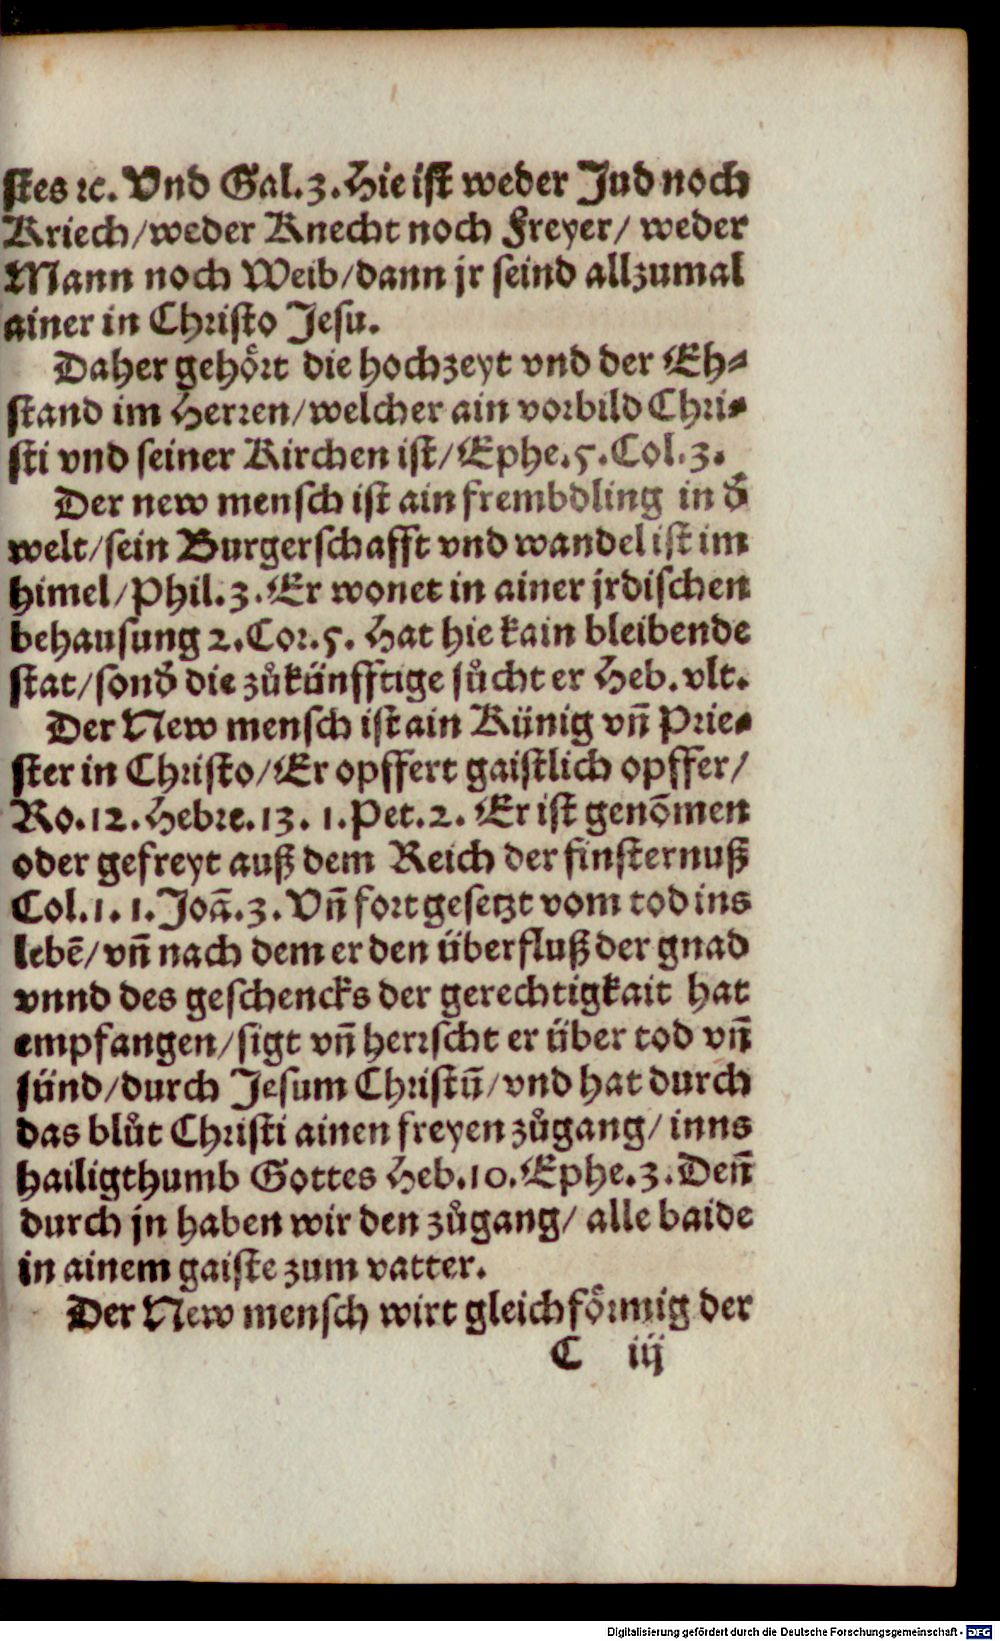 stes ꝛc. Vnd Gal.3. Hie ist weder Jud noch
Kriech/weder Knecht noch Freyer/ weder
Mann noch Weib/dann jr seind allzumal
ainer in Christo Jesu.
Daher gehoͤrt die hochzeyt vnd der Eh⸗
stand im Herren/welcher ain vorbild Chri⸗
sti vnd seiner Kirchen ist/Ephe.5.Col.3.
Der new mensch ist ain frembdling in d̄
welt/sein Burgerschafft vnd wandel ist im
himel/Phil.3. Er wonet in ainer jrdischen
behausung 2.Cor.5. Hat hie kain bleibende
stat/sond̄ die zůkünfftige sůcht er Heb.vlt.
Der New mensch ist ain Künig vn̄ Prie⸗
ster in Christo/Er opffert gaistlich opffer/
Ro.12.Hebre.13. 1.Pet.2. Er ist genōmen
oder gefreyt auß dem Reich der finsternuß
Col.1. 1.Joā.3. Vn̄ fort gesetzt vom tod ins
lebē/vn̄ nach dem er den überfluß der gnad
vnnd des geschencks der gerechtigkait hat
empfangen/sigt vn̄ herrscht er über tod vn̄
sünd/durch Jesum Christū/vnd hat durch
das blůt Christi ainen freyen zůgang/ inns
hailigthumb Gottes Heb.10.Ephe.3.Den̄
durch jn haben wir den zůgang/ alle baide
in ainem gaiste zum vatter.
Der New mensch wirt gleichfoͤrmig der
C iij
Digitalisierung gefördert durch die Deutsche Forschungsgemeinschaft - DFG